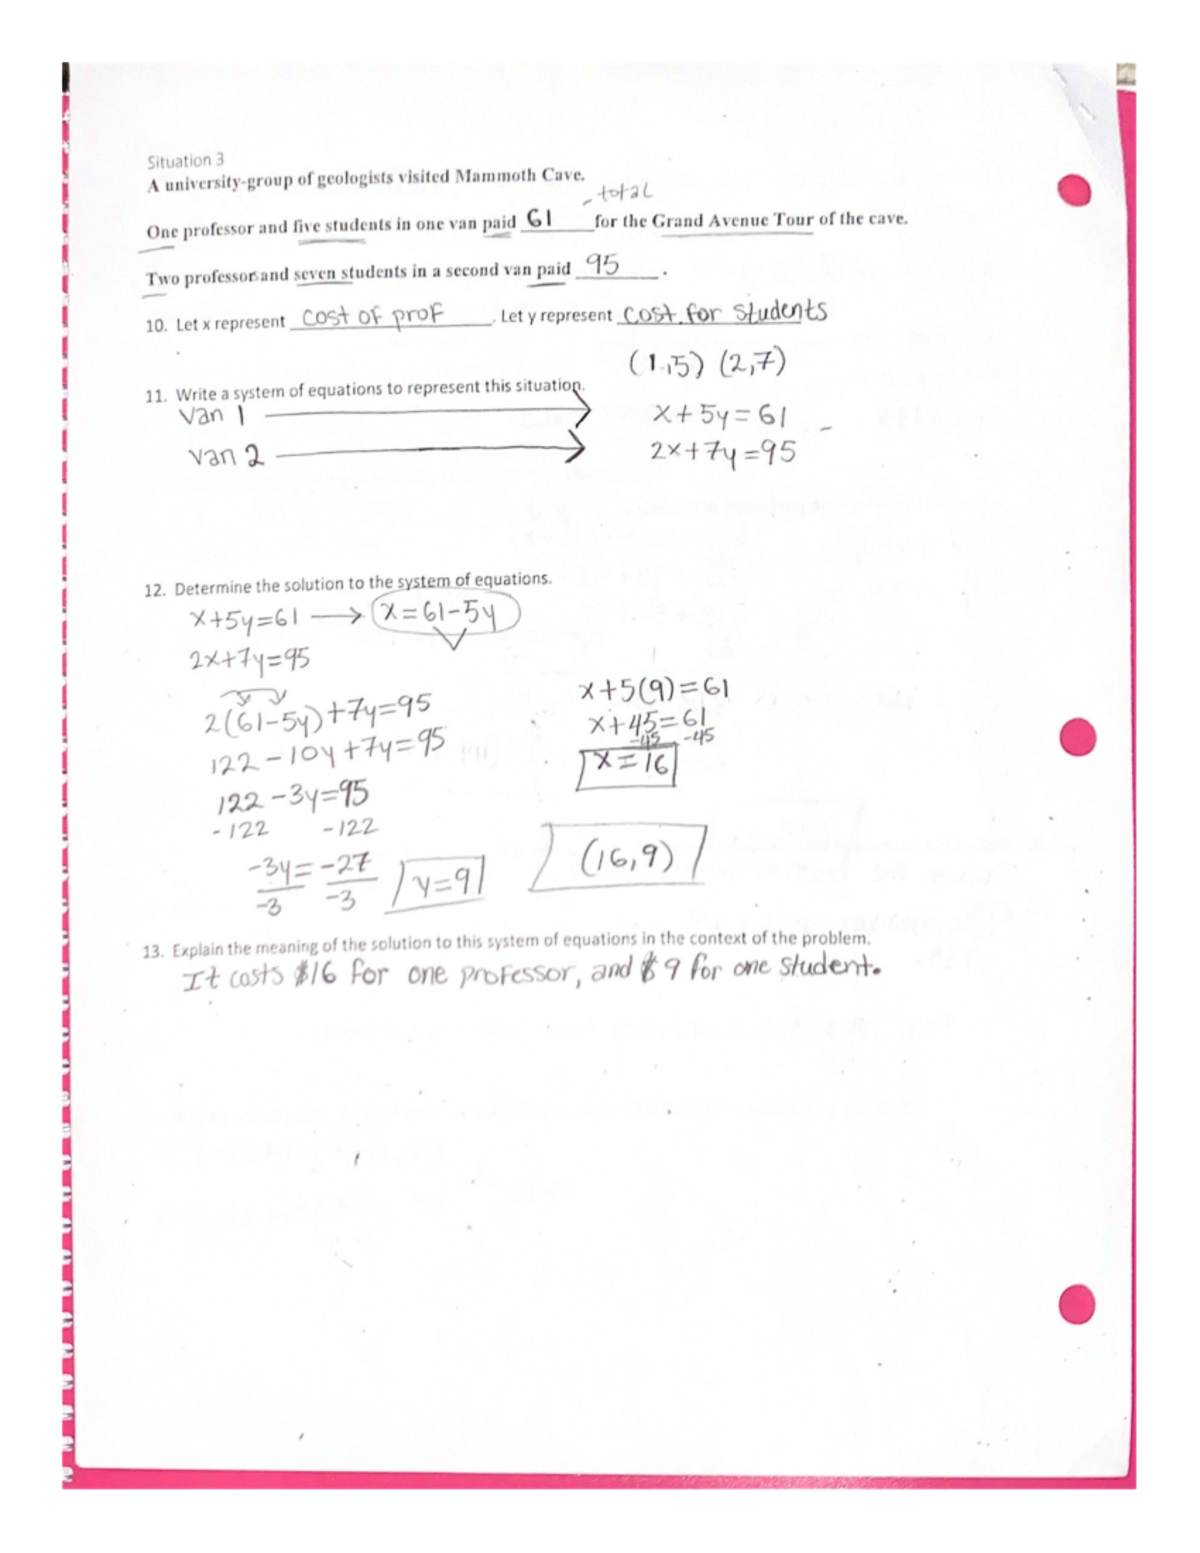 Situation 3
A university-group of geologists visited Mammoth Cave.
total
One professor and five students in one van paid 61 for the Grand Avenue Tour of the cave.
Two professors and seven students in a second van paid 95.
10. Let x represent cost of prof. Let y represent cost for students
(1,5) (2,7)
11. Write a system of equations to represent this situation.
Van 1 → x+5y=61
Van 2 → 2x+7y=95
12. Determine the solution to the system of equations.
x+5y=61 → x=61-5y
2x+7y=95
2(61-5y)+7y=95
122-10y+7y=95
122-3y=95
-122 -122
-3y=-27
-3 -3
y=9
x+5(9)=61
x+45=61
-45 -45
x=16
(16,9)
13. Explain the meaning of the solution to this system of equations in the context of the problem.
It costs $16 for one professor, and $9 for one student.